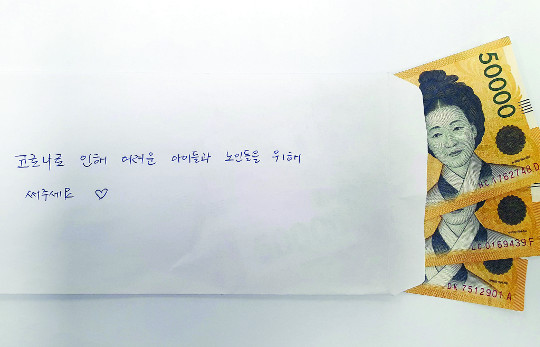 코로나로 인해 어려운 아이들과 노인들을 위해
써주세요 ♡
50000
DK 7512901 A